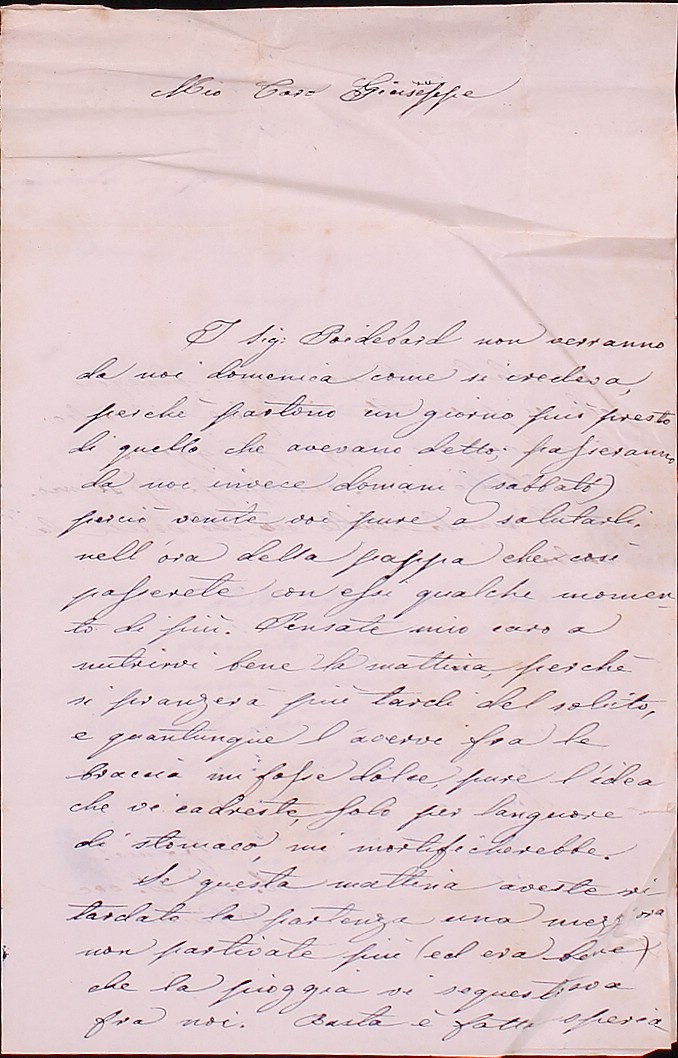 Mio Caro Giuseppe
I Sig: Poidebard non verranno
da noi domenica come si credeva,
perchè partono un giorno più presto
di quello che avevano detto; passeranno
da noi invece domani (sabbato)
perciò venite voi pure a salutarli,
nell'ora della pappa che così
passerete con essi qualche momen-
to di più. Pensate mio caro a
nutrirvi bene la mattina, perchè
si pranzerà più tardi del solito,
e quantunque l'avervi fra le
braccia mi fosse dolce, pure l'idea
che vi cadreste, solo per languore
di stomaco, mi mortificherebbe.
Se questa mattina aveste ri
tardato la partenza una mezz'ora
non partivate più (ed era bene)
che la pioggia vi sequestrava
fra noi. Basta è fatta